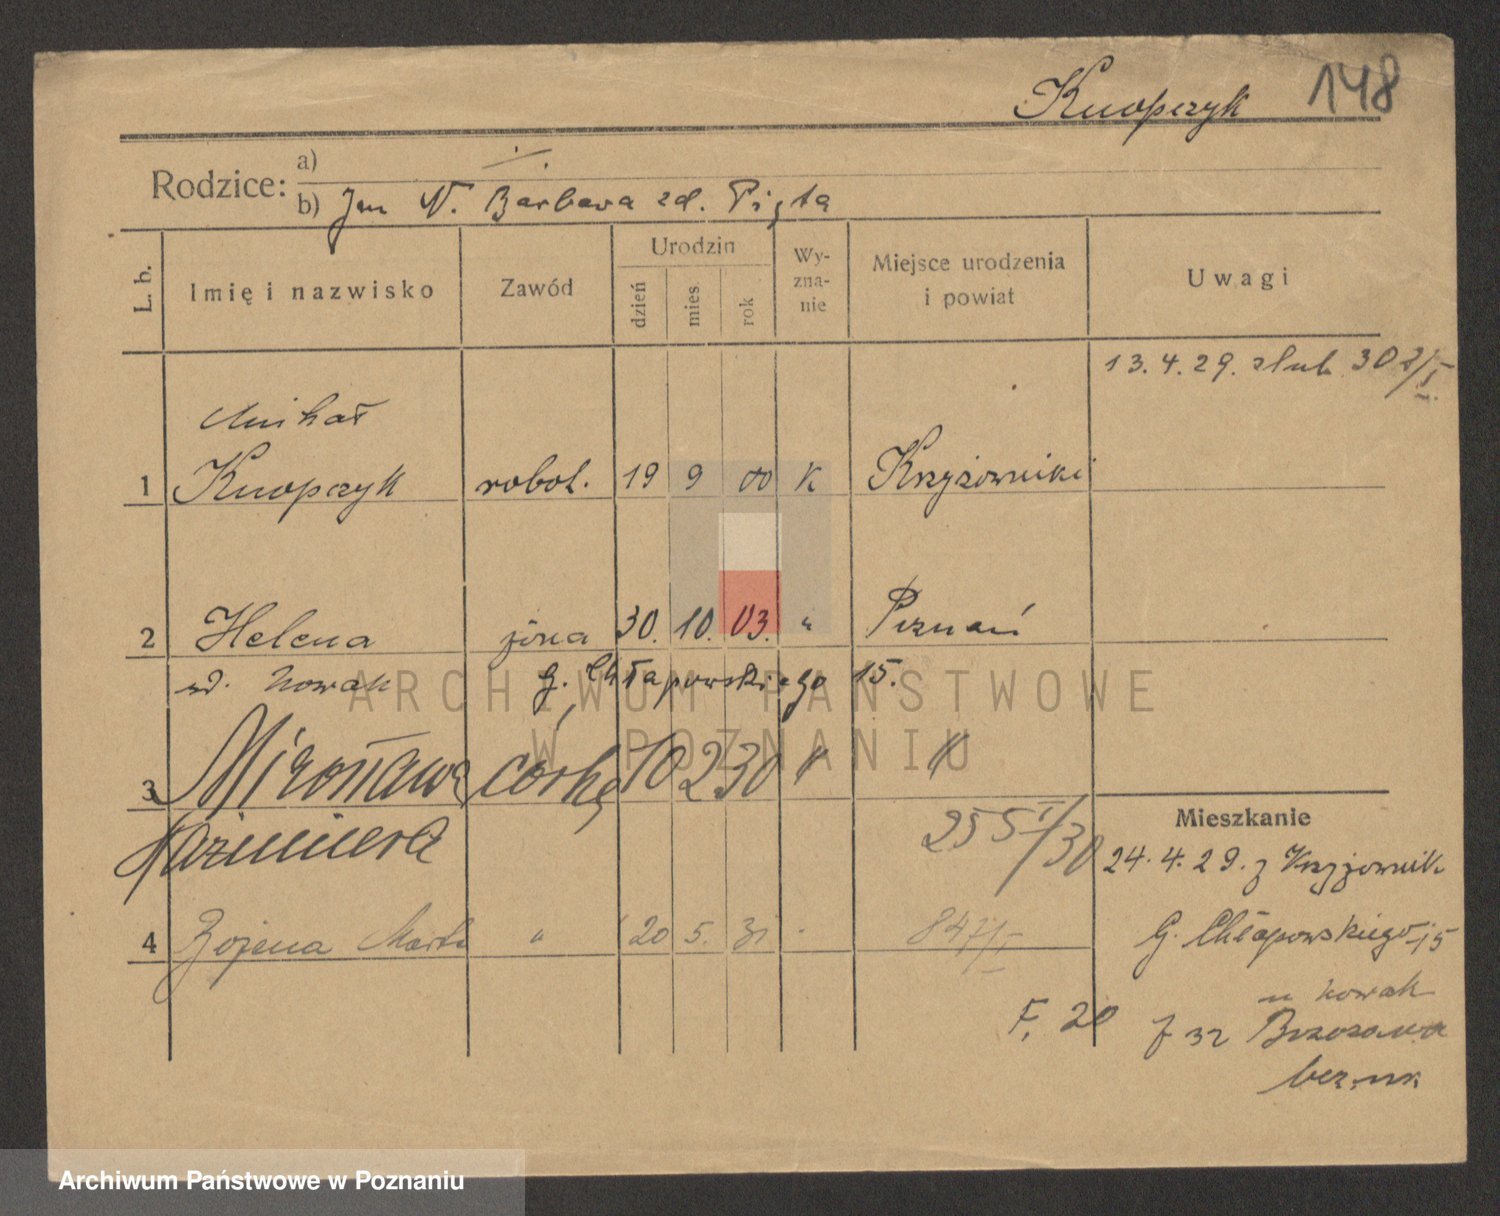 Knopczyk 148
Rodzice:
a) ·/.
b) Jan N. Barbara zd. Pięta
L. b.
Imię i nazwisko
Zawód
Urodzin
dzień
mies.
rok
Wy-
zna-
nie
Miejsce urodzenia
i powiat
Uwagi
13.4.29. ślub 302/I
Michał
1 Knopczyk robot. 19 9 00 k Krzyżowniki
2 Helena żona 30. 10. 03. " Poznań
zd. Nowak G. Chłapowskiego 15.
3 Mirosława córka 10 2 30 " "
Kazimiera 255 I/30
4 Bożena Marta " 20 5. 31 " 847/I
Mieszkanie
24.4.29. z Krzyżownik
G. Chłapowskiego 15
u Nowak
F. 20
f 32 Brzozowa
bez nr.
ARCHIWUM PAŃSTWOWE
W POZNANIU
Archiwum Państwowe w Poznaniu